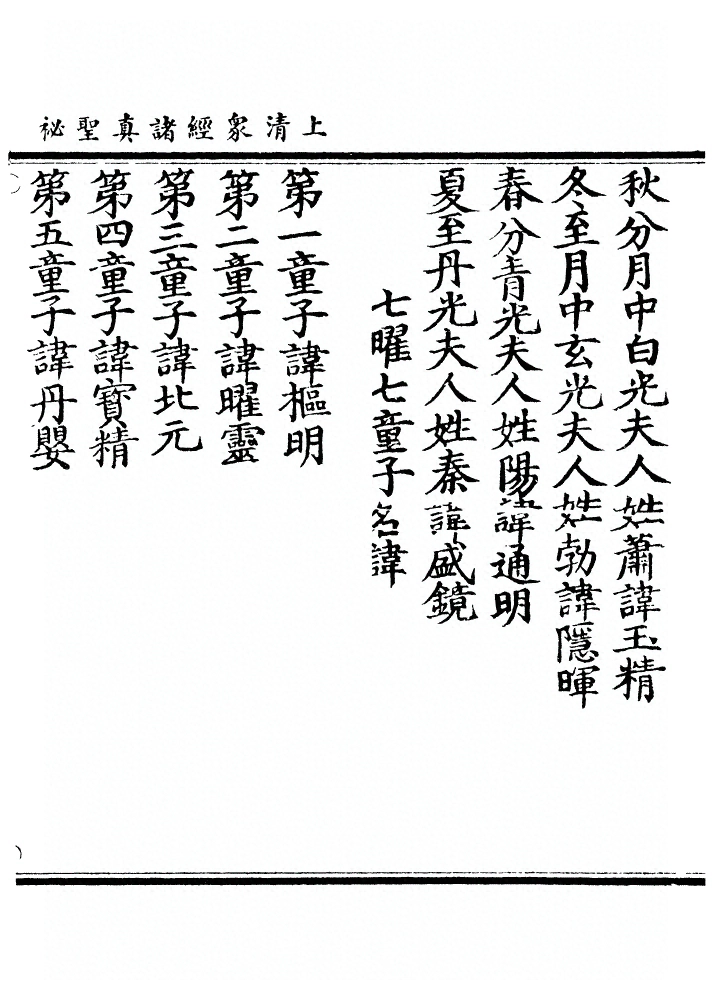 上清衆經諸真聖祕
秋分月中白光夫人姓蕭諱玉精
冬至月中玄光夫人姓勃諱隱暉
春分青光夫人姓陽諱通明
夏至丹光夫人姓秦諱盛鏡
七曜七童子名諱
第一童子諱樞明
第二童子諱曜靈
第三童子諱北元
第四童子諱寶精
第五童子諱丹嬰